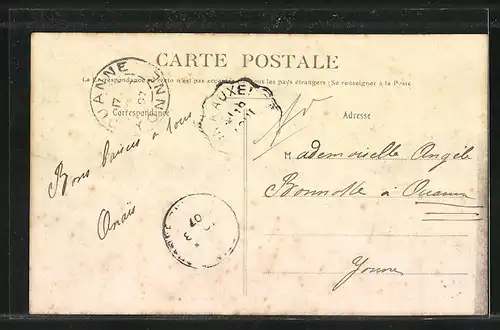 CARTE POSTALE
La Correspondance au recto n'est pas acceptée par tous les pays étrangers (Se renseigner à la Poste
Correspondance
Adresse
OUANNE YONNE
AUXERRE
Bons baisers à tous
Anaïs
Mademoiselle Angèle
Bonnotte à Ouanne
Yonne
07